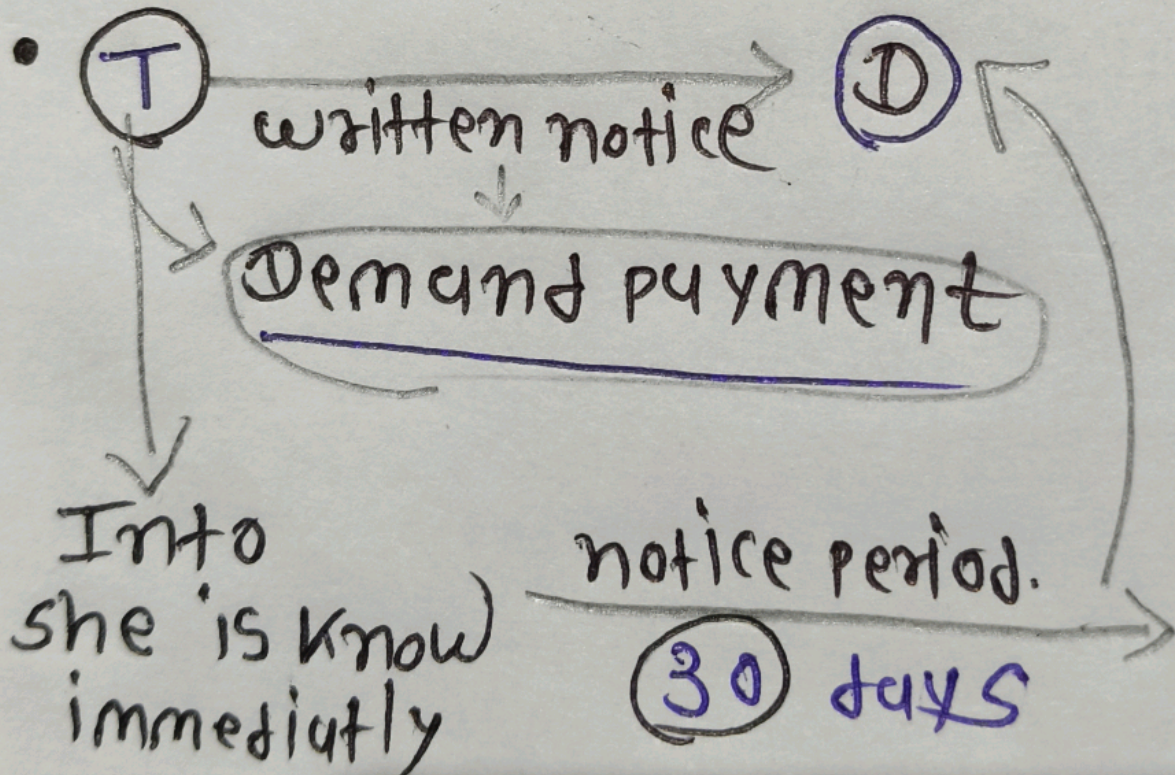 T D
written notice
Demand payment
Into
she is know
immediatly
notice period.
30 days